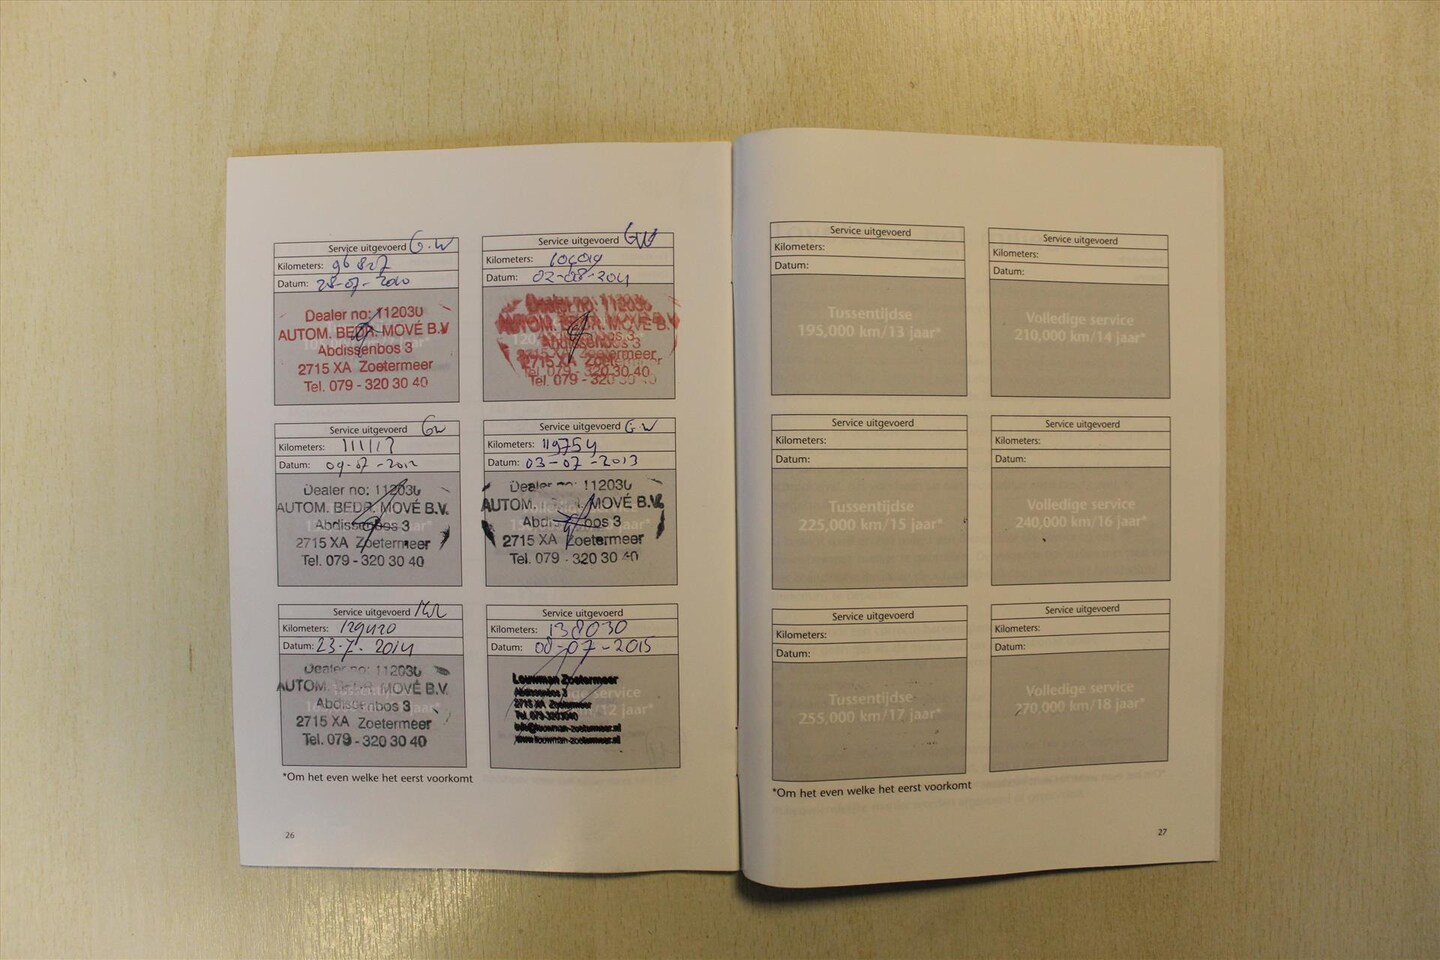 Service uitgevoerd G.W
Kilometers: 96827
Datum: 28-07-2010
Dealer no: 112030
AUTOM. BEDR. MOVÉ B.V
Abdissenbos 3
2715 XA Zoetermeer
Tel. 079 - 320 30 40
Service uitgevoerd GW
Kilometers:
Datum: 02-08-2011
Dealer no: 112030
AUTOM. BEDR. MOVÉ B.V
Abdissenbos 3
2715 XA Zoetermeer
Tel. 079 - 320 30 40
Service uitgevoerd GW
Kilometers: 111117
Datum: 09-07-2012
Dealer no: 112030
AUTOM. BEDR. MOVÉ B.V.
Abdissenbos 3
2715 XA Zoetermeer
Tel. 079 - 320 30 40
Service uitgevoerd GW
Kilometers: 119754
Datum: 03-07-2013
Dealer no: 112030
AUTOM. MOVÉ B.V.
Abdissenbos 3
2715 XA Zoetermeer
Tel. 079 - 320 30 40
Service uitgevoerd
Kilometers: 129420
Datum: 23-7-2014
Dealer no: 112030
AUTOM. BEDR. MOVÉ B.V.
Abdissenbos 3
2715 XA Zoetermeer
Tel. 079 - 320 30 40
Service uitgevoerd
Kilometers: 138030
Datum: 08-07-2015
Louwman Zoetermeer
Abdissenbos 3
2715 XA Zoetermeer
Tel. 079-3203040
info@louwman-zoetermeer.nl
www.louwman-zoetermeer.nl
*Om het even welke het eerst voorkomt
26
Service uitgevoerd
Kilometers:
Datum:
Tussentijdse
195,000 km/13 jaar*
Service uitgevoerd
Kilometers:
Datum:
Volledige service
210,000 km/14 jaar*
Service uitgevoerd
Kilometers:
Datum:
Tussentijdse
225,000 km/15 jaar*
Service uitgevoerd
Kilometers:
Datum:
Volledige service
240,000 km/16 jaar*
Service uitgevoerd
Kilometers:
Datum:
Tussentijdse
255,000 km/17 jaar*
Service uitgevoerd
Kilometers:
Datum:
Volledige service
270,000 km/18 jaar*
*Om het even welke het eerst voorkomt
27